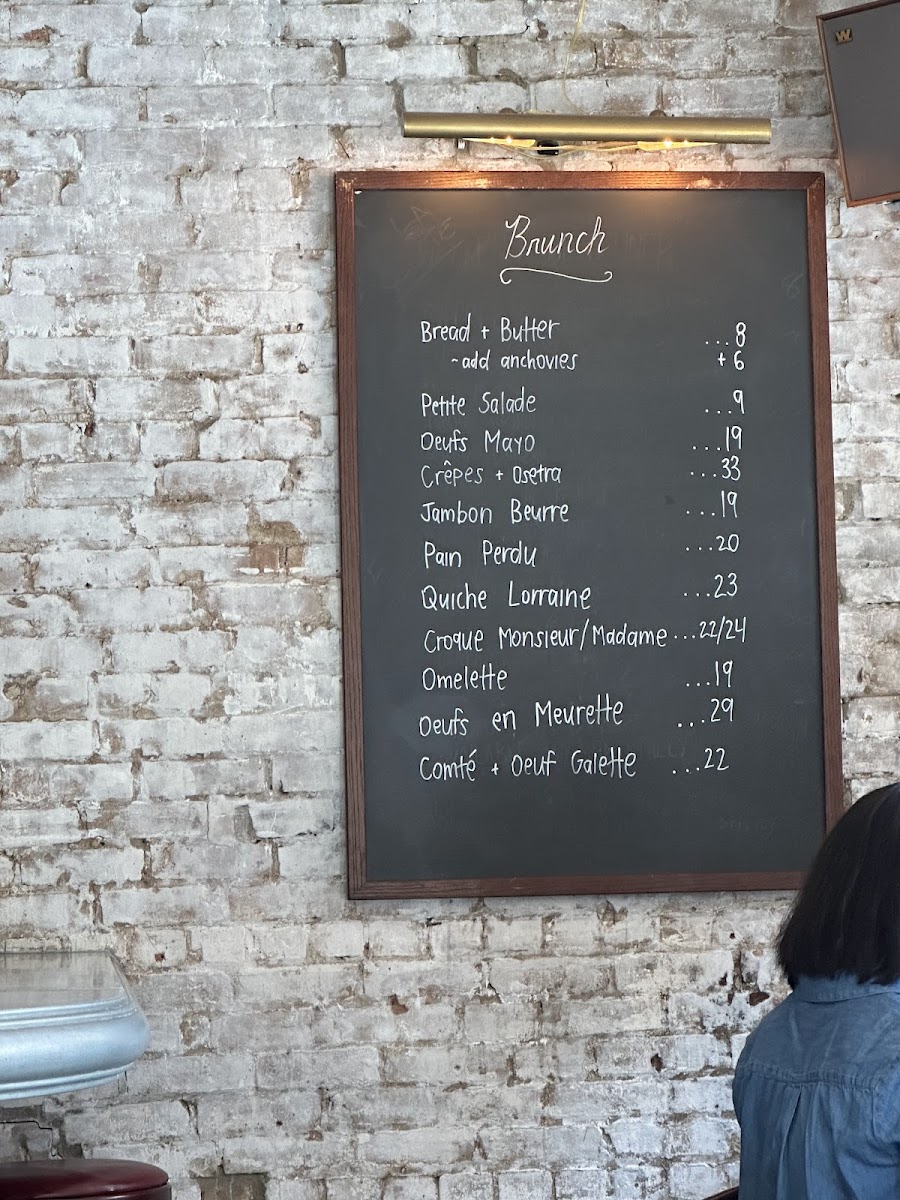 W
Brunch
Bread + Butter ...8
~add anchovies +6
Petite Salade ...9
Oeufs Mayo ...19
Crêpes + Osetra ...33
Jambon Beurre ...19
Pain Perdu ...20
Quiche Lorraine ...23
Croque Monsieur/Madame ...22/24
Omelette ...19
Oeufs en Meurette ...29
Comté + Oeuf Galette ...22